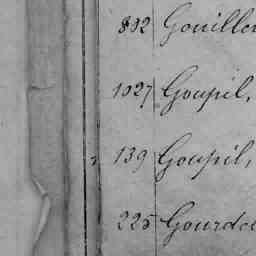 892 Gouillo
1027 Goupil,
139 Goupil,
225 Gourde